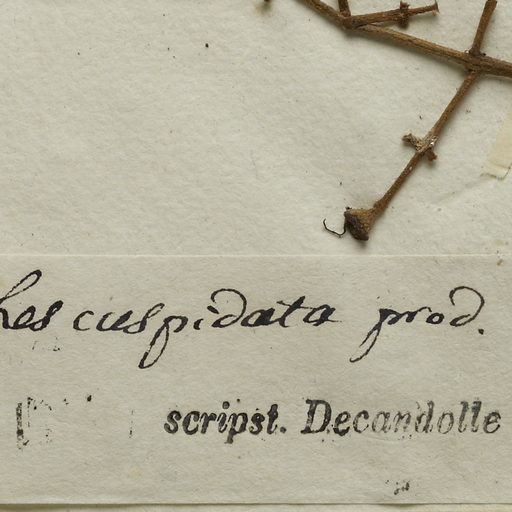 cuspidata prod.
scripst. Decandolle